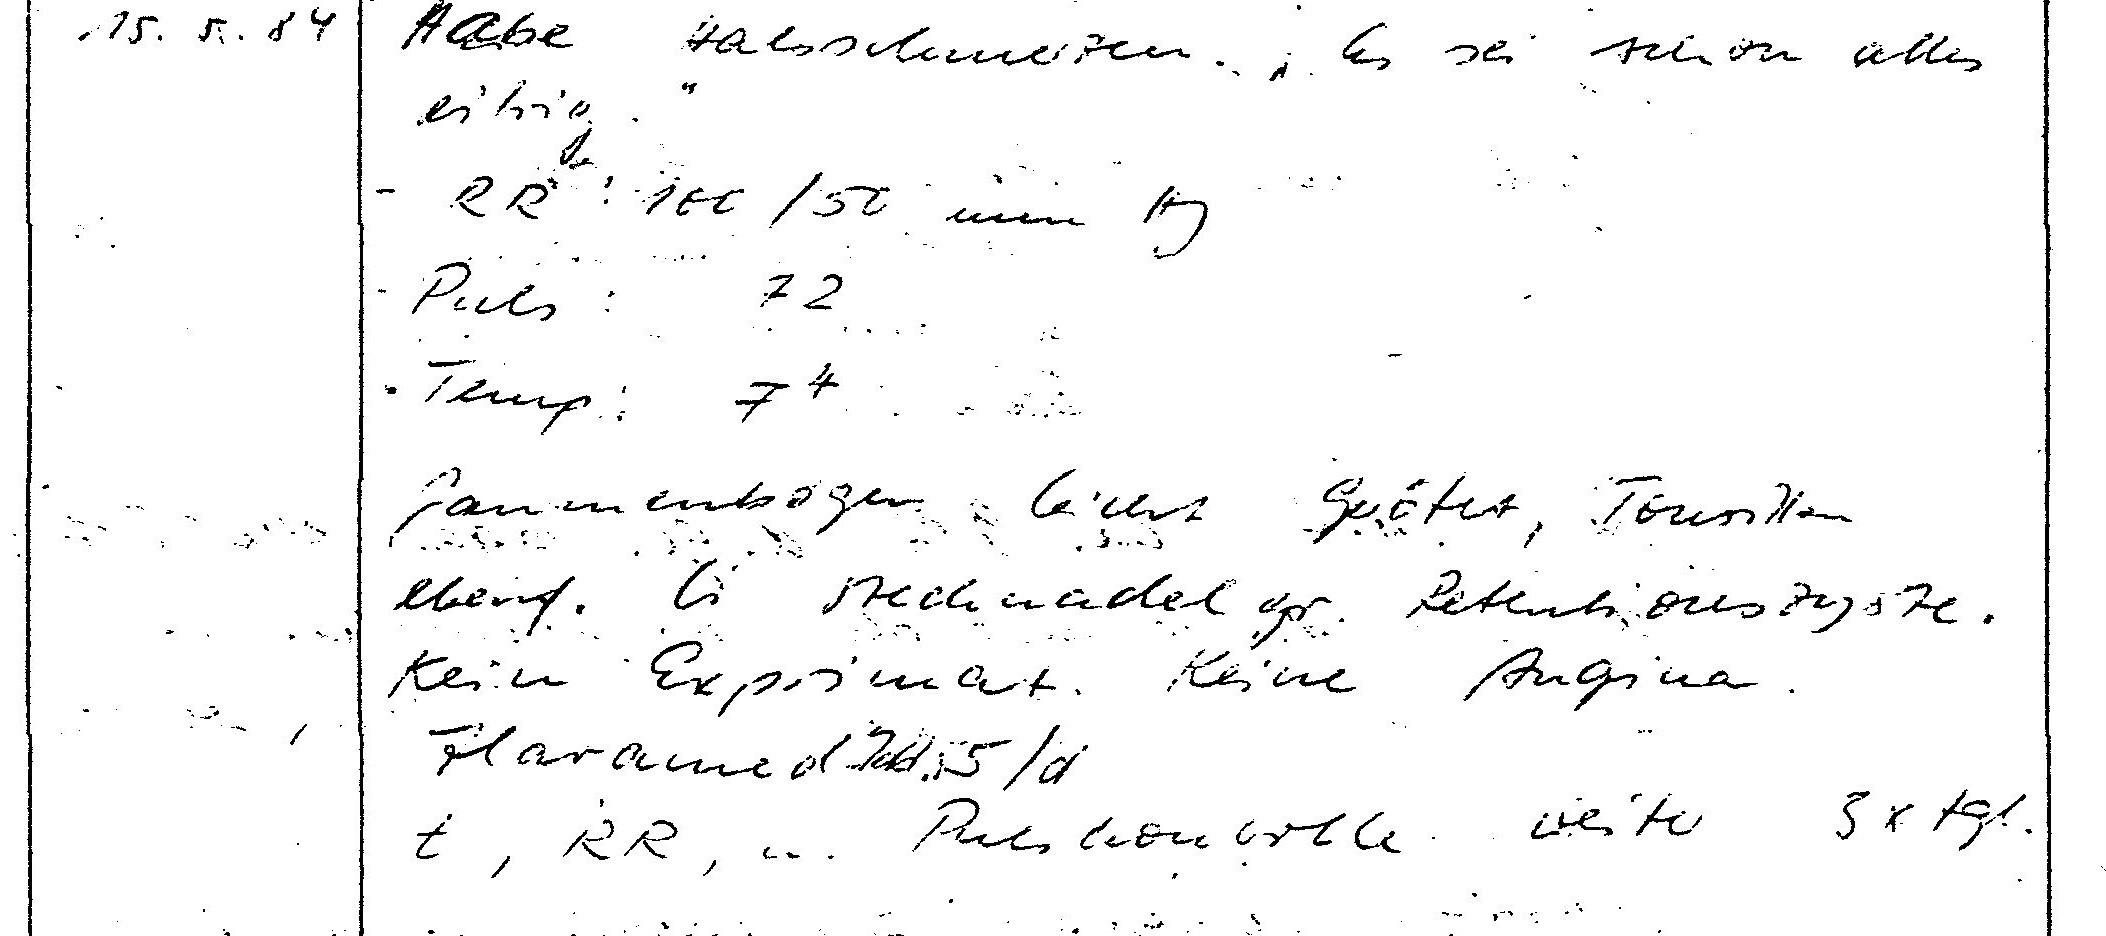 15.5.84 Habe Halsschmerzen. „Es sei schon alles
eitrig."
- RR: 100/50 mm Hg
- Puls: 72
- Temp: 7⁴
Gaumenbögen leicht gerötet, Tonsillen
ebenf. li stecknadelgr. Retentionszyste.
Kein Exprimat. Keine Angina.
Flavamed Tbl. 5/d
t, RR, u. Pulskontrolle weiter 3x tgl.